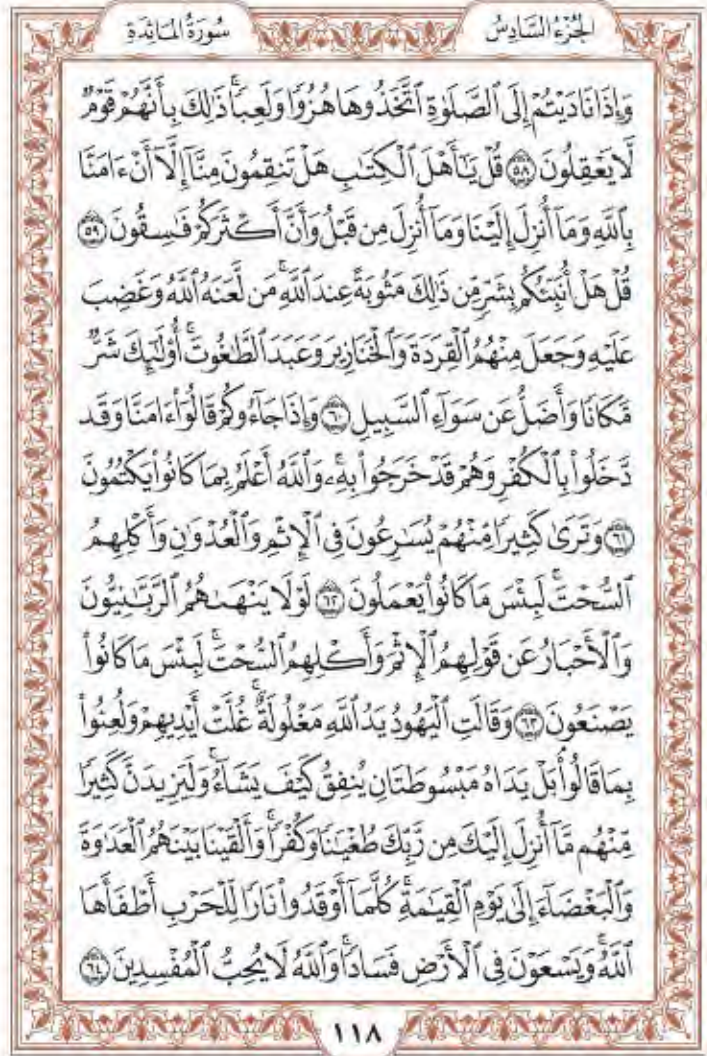 الجُزْءُ السَّادِسُ
سُورَةُ المَائِدَةِ
وَإِذَا نَادَيْتُمْ إِلَى ٱلصَّلَوٰةِ ٱتَّخَذُوهَا هُزُوًا وَلَعِبًاۚ ذَٰلِكَ بِأَنَّهُمْ قَوْمٌ
لَّا يَعْقِلُونَ ٥٨ قُلْ يَٰٓأَهْلَ ٱلْكِتَٰبِ هَلْ تَنقِمُونَ مِنَّآ إِلَّآ أَنْ ءَامَنَّا
بِٱللَّهِ وَمَآ أُنزِلَ إِلَيْنَا وَمَآ أُنزِلَ مِن قَبْلُ وَأَنَّ أَكْثَرَكُمْ فَٰسِقُونَ ٥٩
قُلْ هَلْ أُنَبِّئُكُم بِشَرٍّ مِّن ذَٰلِكَ مَثُوبَةً عِندَ ٱللَّهِۚ مَن لَّعَنَهُ ٱللَّهُ وَغَضِبَ
عَلَيْهِ وَجَعَلَ مِنْهُمُ ٱلْقِرَدَةَ وَٱلْخَنَازِيرَ وَعَبَدَ ٱلطَّٰغُوتَۚ أُو۟لَٰٓئِكَ شَرٌّ
مَّكَانًا وَأَضَلُّ عَن سَوَآءِ ٱلسَّبِيلِ ٦٠ وَإِذَا جَآءُوكُمْ قَالُوٓا۟ ءَامَنَّا وَقَد
دَّخَلُوا۟ بِٱلْكُفْرِ وَهُمْ قَدْ خَرَجُوا۟ بِهِۦۚ وَٱللَّهُ أَعْلَمُ بِمَا كَانُوا۟ يَكْتُمُونَ
٦١ وَتَرَىٰ كَثِيرًا مِّنْهُمْ يُسَٰرِعُونَ فِى ٱلْإِثْمِ وَٱلْعُدْوَٰنِ وَأَكْلِهِمُ
ٱلسُّحْتَۚ لَبِئْسَ مَا كَانُوا۟ يَعْمَلُونَ ٦٢ لَوْلَا يَنْهَىٰهُمُ ٱلرَّبَّٰنِيُّونَ
وَٱلْأَحْبَارُ عَن قَوْلِهِمُ ٱلْإِثْمَ وَأَكْلِهِمُ ٱلسُّحْتَۚ لَبِئْسَ مَا كَانُوا۟
يَصْنَعُونَ ٦٣ وَقَالَتِ ٱلْيَهُودُ يَدُ ٱللَّهِ مَغْلُولَةٌۚ غُلَّتْ أَيْدِيهِمْ وَلُعِنُوا۟
بِمَا قَالُوا۟ۘ بَلْ يَدَاهُ مَبْسُوطَتَانِ يُنفِقُ كَيْفَ يَشَآءُۚ وَلَيَزِيدَنَّ كَثِيرًا
مِّنْهُم مَّآ أُنزِلَ إِلَيْكَ مِن رَّبِّكَ طُغْيَٰنًا وَكُفْرًاۚ وَأَلْقَيْنَا بَيْنَهُمُ ٱلْعَدَٰوَةَ
وَٱلْبَغْضَآءَ إِلَىٰ يَوْمِ ٱلْقِيَٰمَةِۚ كُلَّمَآ أَوْقَدُوا۟ نَارًا لِّلْحَرْبِ أَطْفَأَهَا
ٱللَّهُۚ وَيَسْعَوْنَ فِى ٱلْأَرْضِ فَسَادًاۚ وَٱللَّهُ لَا يُحِبُّ ٱلْمُفْسِدِينَ ٦٤
١١٨